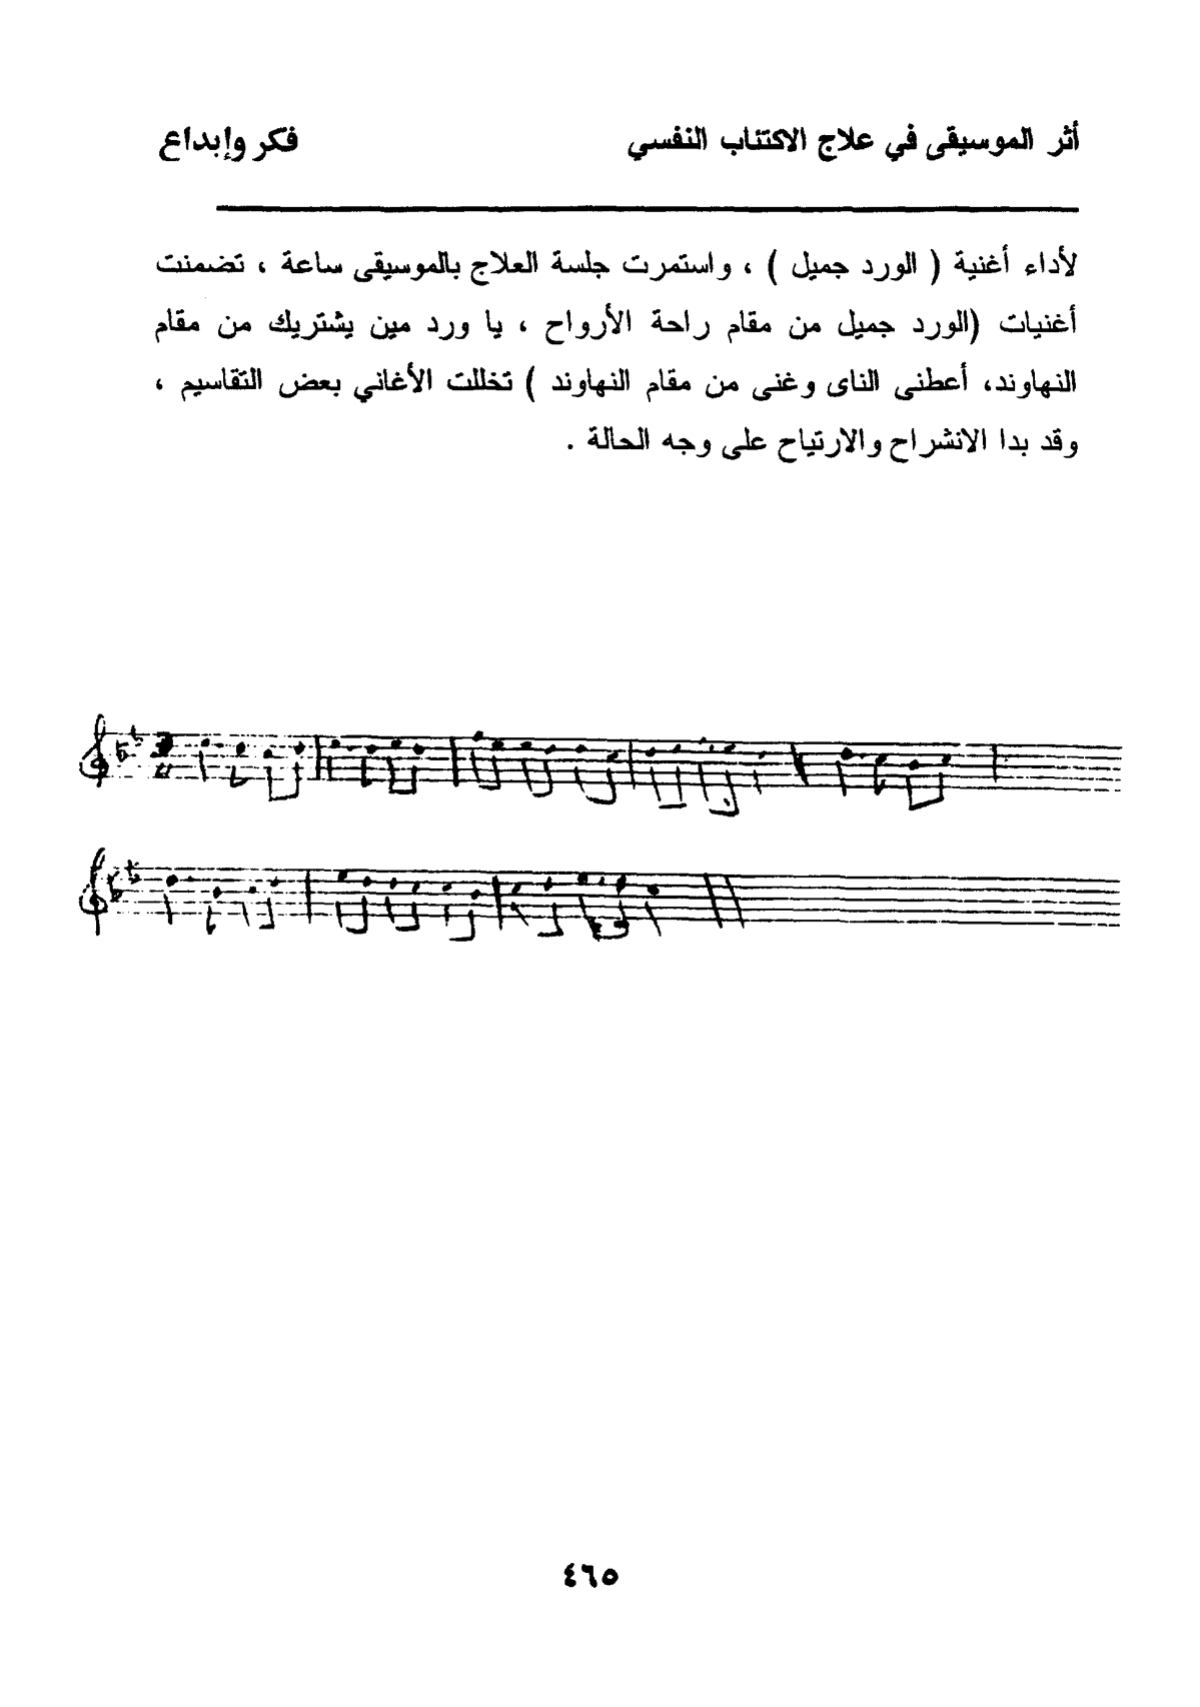 أثر الموسيقى في علاج الاكتئاب النفسي فكر وإبداع
لأداء أغنية ( الورد جميل ) ، واستمرت جلسة العلاج بالموسيقى ساعة ، تضمنت
أغنيات (الورد جميل من مقام راحة الأرواح ، يا ورد مين يشتريك من مقام
النهاوند، أعطنى الناى وغنى من مقام النهاوند ) تخللت الأغاني بعض التقاسيم ،
وقد بدا الانشراح والارتياح على وجه الحالة .
٤٦٥